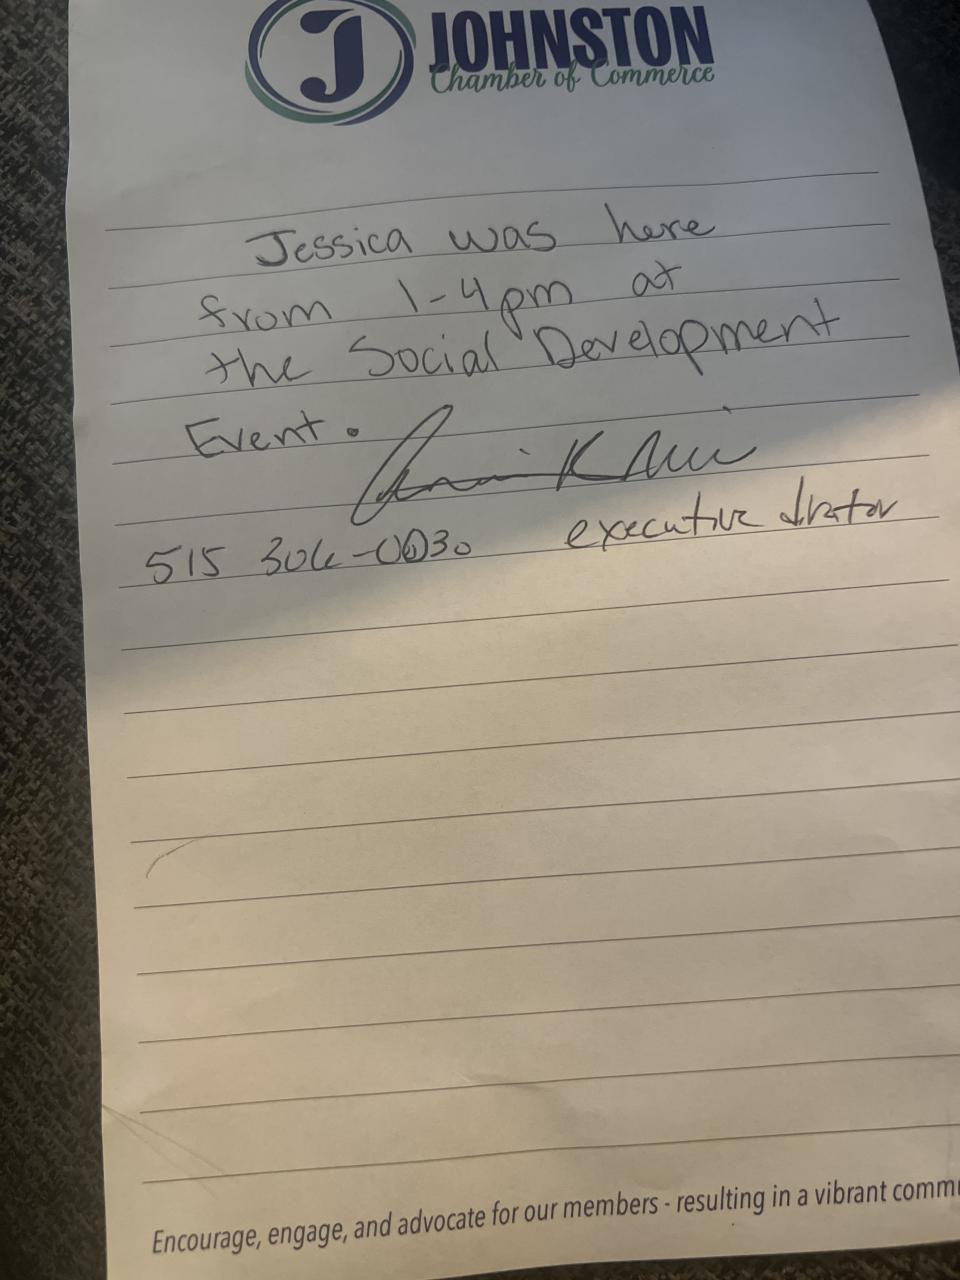 J JOHNSTON
Chamber of Commerce
Jessica was here
from 1-4pm at
the Social Development
Event.
515 304-0030 executive
Encourage, engage, and advocate for our members - resulting in a vibrant comm